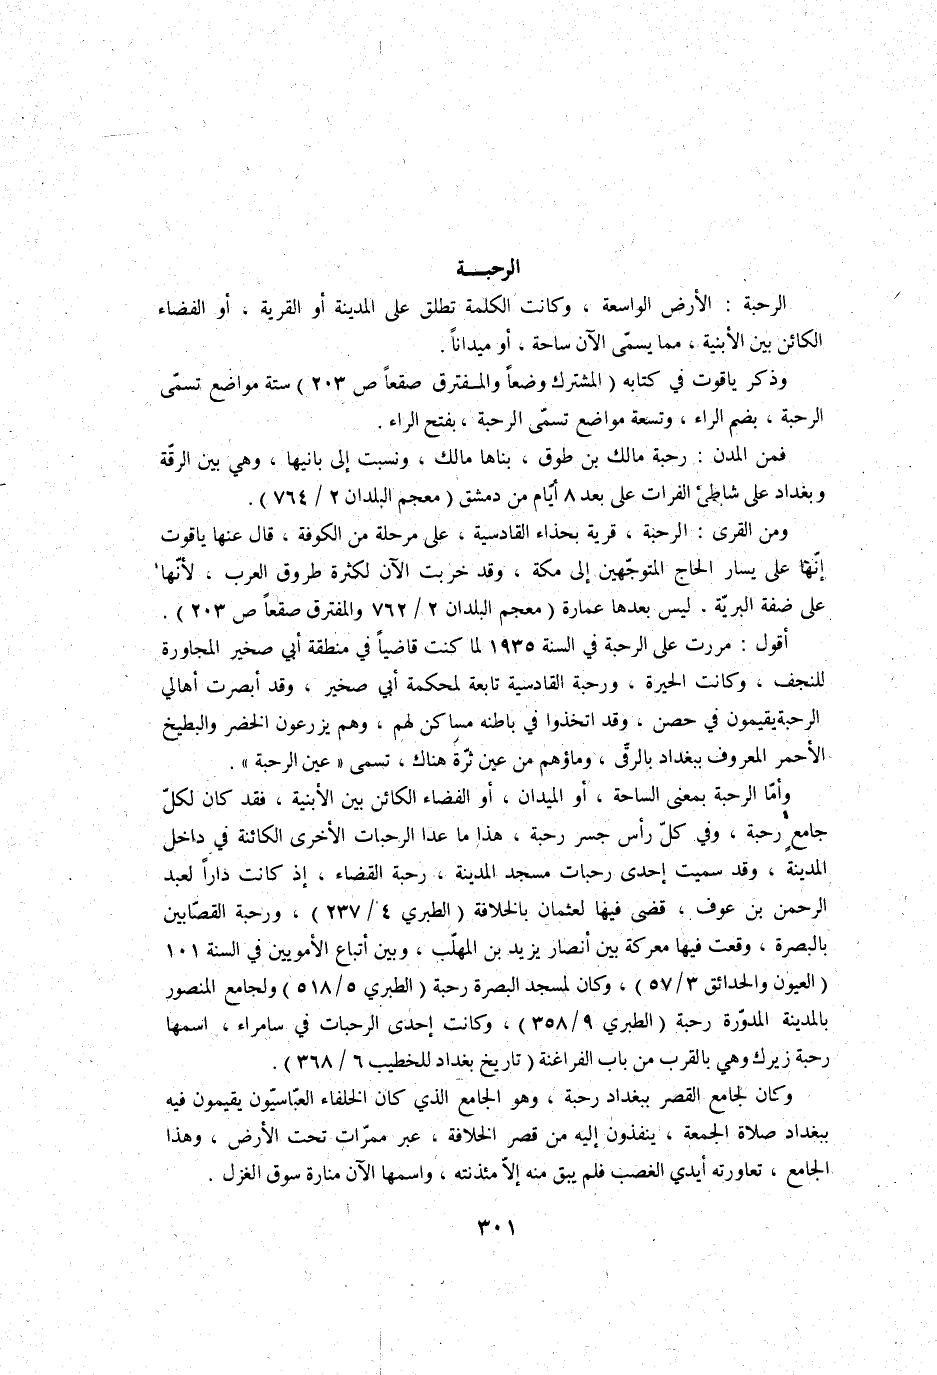 الرحبـــة
الرحبة : الأرض الواسعة ، وكانت الكلمة تطلق على المدينة أو القرية ، أو الفضاء
الكائن بين الأبنية ، مما يسمّى الآن ساحة ، أو ميداناً .
وذكر ياقوت في كتابه ( المشترك وضعاً والمـفترق صقعاً ص ٢٠٣ ) ستة مواضع تسمّى
الرحبة ، بضم الراء ، وتسعة مواضع تسمّى الرحبة ، بفتح الراء .
فمن المدن : رحبة مالك بن طوق ، بناها مالك ، ونسبت إلى بانيها ، وهي بين الرقّة
وبغداد على شاطئ الفرات على بعد ٨ أيّام من دمشق ( معجم البلدان ٢ / ٧٦٤ ) .
ومن القرى : الرحبة ، قرية بحذاء القادسية ، على مرحلة من الكوفة ، قال عنها ياقوت
إنّها على يسار الحاج المتوجّهين إلى مكة ، وقد خربت الآن لكثرة طروق العرب ، لأنّها
على ضفة البريّة . ليس بعدها عمارة ( معجم البلدان ٢ / ٧٦٢ والمفترق صقعاً ص ٢٠٣ ) .
أقول : مررت على الرحبة في السنة ١٩٣٥ لما كنت قاضياً في منطقة أبي صخير المجاورة
للنجف ، وكانت الحيرة ، ورحبة القادسية تابعة لمحكمة أبي صخير ، وقد أبصرت أهالي
الرحبة يقيمون في حصن ، وقد اتخذوا في باطنه مساكن لهم ، وهم يزرعون الخضر والبطيخ
الأحمر المعروف ببغداد بالرقّي ، وماؤهم من عين ثرّة هناك ، تسمى « عين الرحبة » .
وأمّا الرحبة بمعنى الساحة ، أو الميدان ، أو الفضاء الكائن بين الأبنية ، فقد كان لكلّ
جامع رحبة ، وفي كلّ رأس جسر رحبة ، هذا ما عدا الرحبات الأخرى الكائنة في داخل
المدينة ، وقد سميت إحدى رحبات مسجد المدينة ، رحبة القضاء ، إذ كانت داراً لعبد
الرحمن بن عوف ، قضى فيها لعثمان بالخلافة ( الطبري ٤ / ٢٣٧ ) ، ورحبة القصّابين
بالبصرة ، وقعت فيها معركة بين أنصار يزيد بن المهلّب ، وبين أتباع الأمويين في السنة ١٠١
( العيون والحدائق ٥٧/٣ ) ، وكان لمسجد البصرة رحبة ( الطبري ٥ / ٥١٨ ) ولجامع المنصور
بالمدينة المدوّرة رحبة ( الطبري ٩ / ٣٥٨ ) ، وكانت إحدى الرحبات في سامراء ، اسمها
رحبة زيرك وهي بالقرب من باب الفراغنة ( تاريخ بغداد للخطيب ٦ / ٣٦٨ ) .
وكان لجامع القصر ببغداد رحبة ، وهو الجامع الذي كان الخلفاء العبّاسيّون يقيمون فيه
ببغداد صلاة الجمعة ، ينفذون إليه من قصر الخلافة ، عبر ممرّات تحت الأرض ، وهذا
الجامع ، تعاورته أيدي الغصب فلم يبق منه إلاّ مئذنته ، واسمها الآن منارة سوق الغزل .
٣٠١